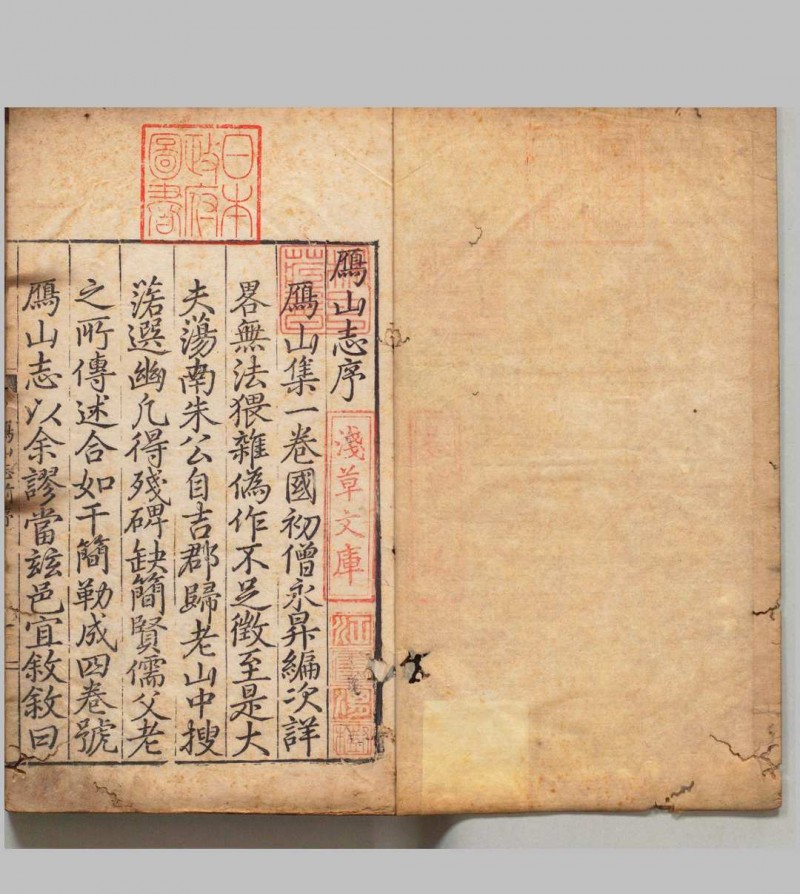 日本
政府
圖書
鴈山志序
淺草文庫
鴈山集一卷國初僧永昇編次詳
畧無法猥雜偽作不足徵至是大
夫蕩南朱公自吉郡歸老山中搜
選幽凡得殘碑缺簡賢儒父老
之所傳述合如干簡勒成四卷號
鴈山志以余謬當玆邑宜敘敘曰